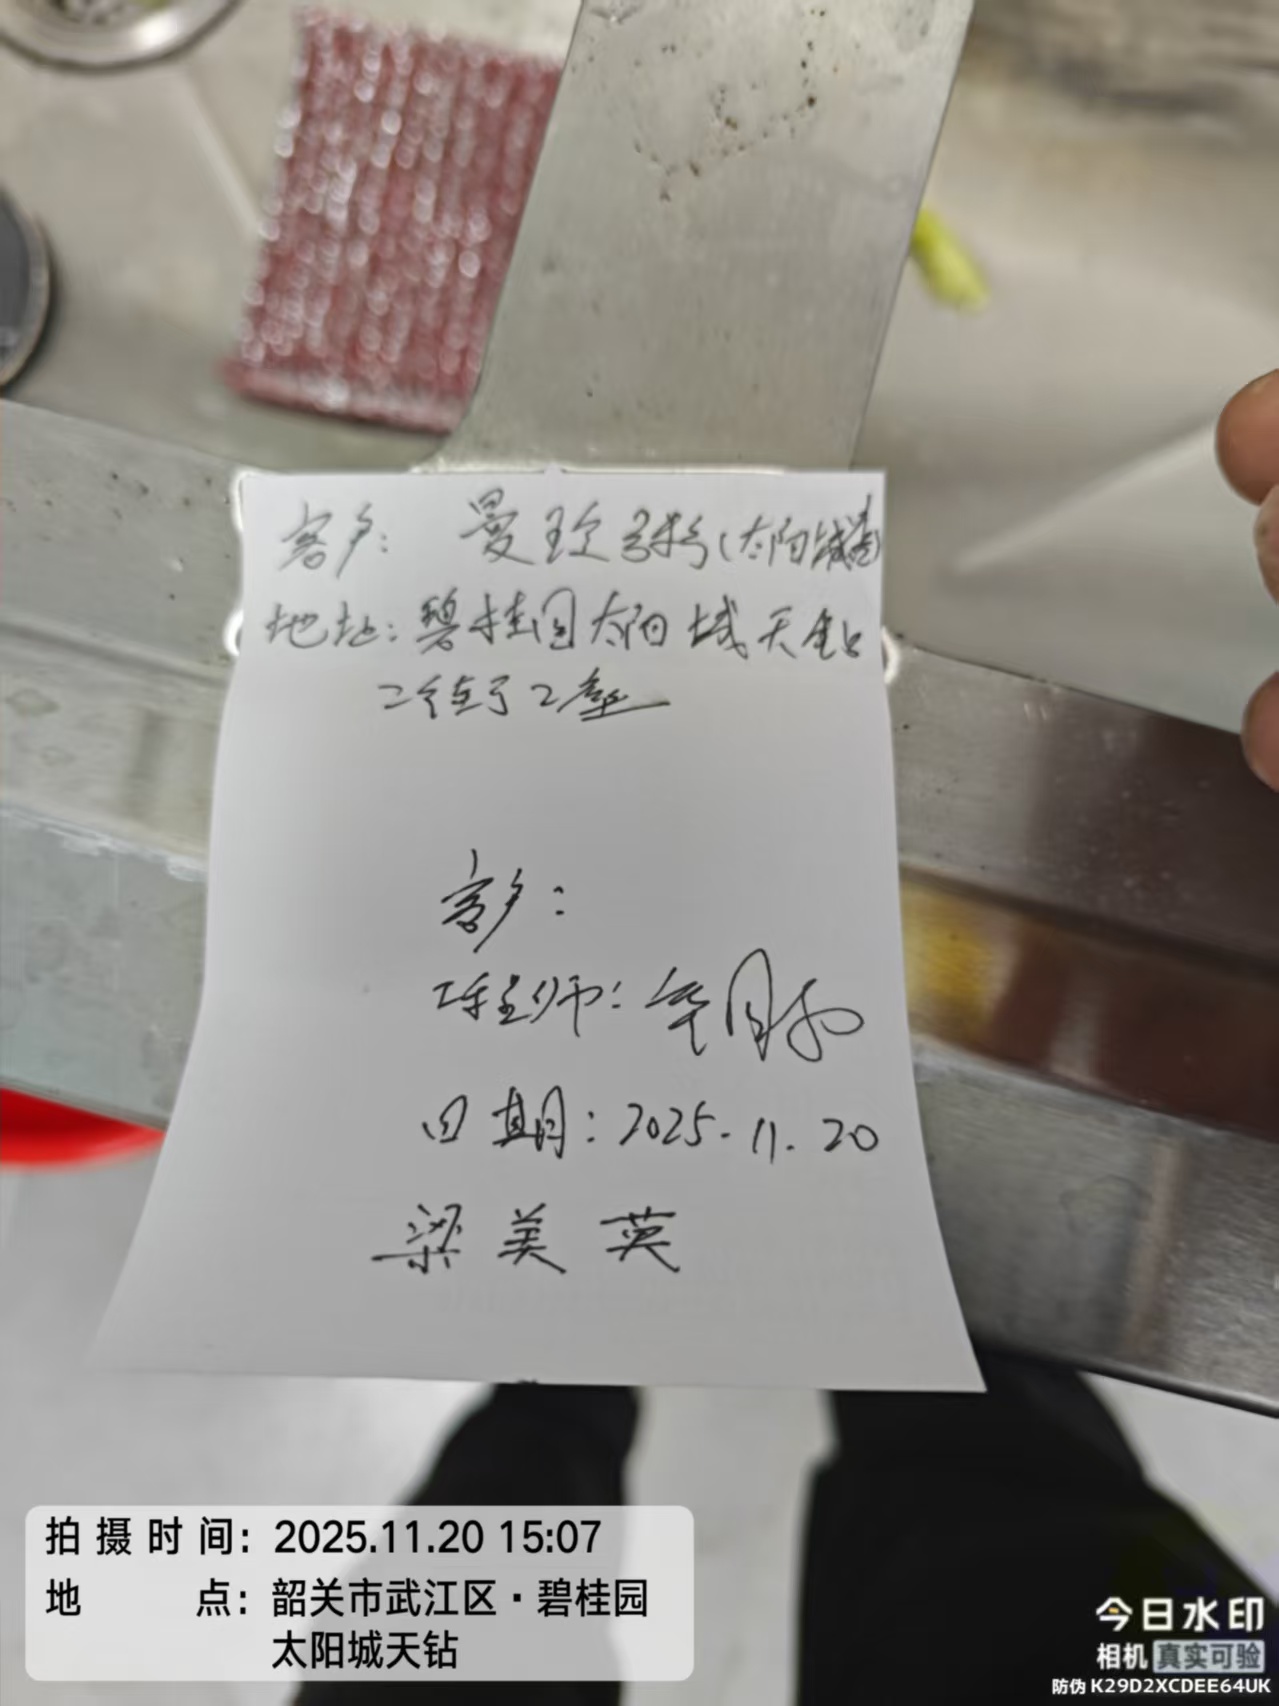 客户: 曼玟 (太阳城店)
地址: 碧桂园太阳城天钻
二街 2座
客户:
工程师:
日期: 2025.11.20
梁美英
拍摄时间: 2025.11.20 15:07
地点: 韶关市武江区·碧桂园
太阳城天钻
今日水印
相机 真实可验
防伪 K29D2XCDEE64UK